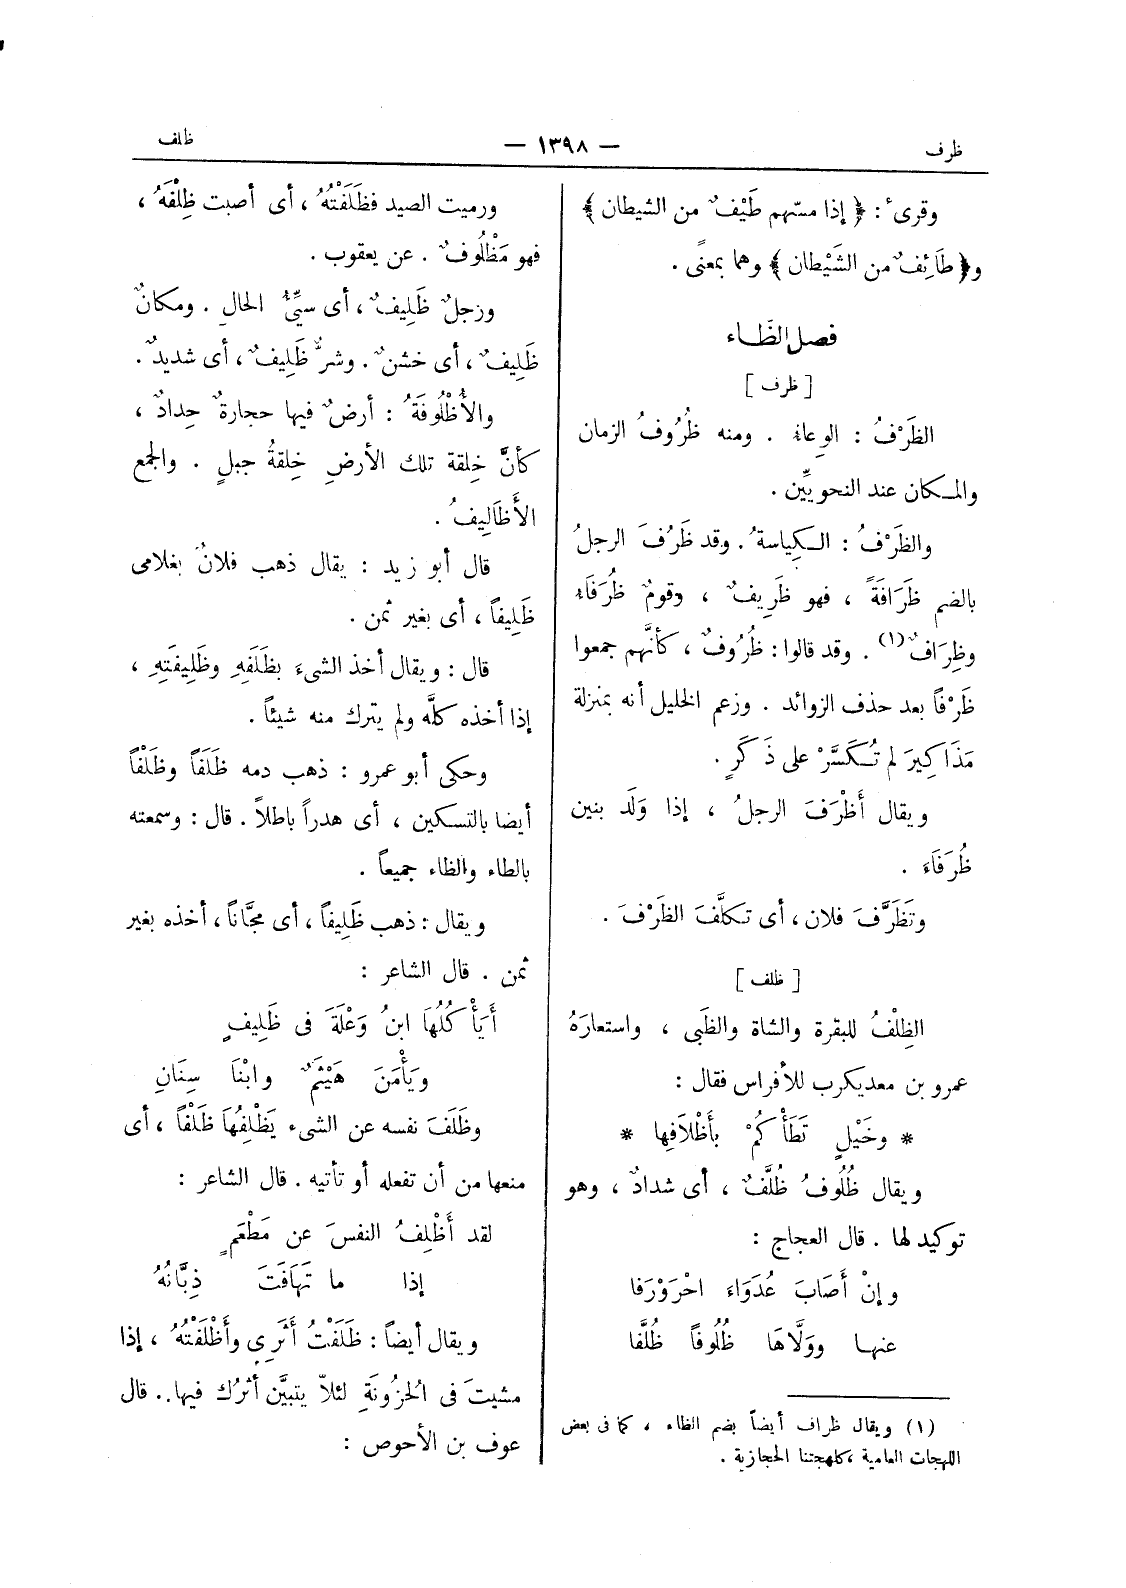 ظرف
— ١٣٩٨ —
ظلف
وقرئ : ﴿ إذا مسّهم طَيْفٌ من الشيطان ﴾
و﴿ طَائِفٌ من الشَيْطان ﴾ وهما بمعنًى .
فصل الظّاء
[ ظرف ]
الظَرْفُ : الوِعاءُ . ومنه ظُرُوفُ الزمان
والمكان عند النحويِّين .
والظَرْفُ : الكِياسةُ . وقد ظَرُفَ الرجلُ
بالضم ظَرَافَةً ، فهو ظَرِيفٌ ، وقومٌ ظُرَفَاءُ
وظِرَافٌ(١) . وقد قالوا : ظُرُوفٌ ، كأنَّهم جمعوا
ظَرْفاً بعد حذف الزوائد . وزعم الخليل أنه بمنزلة
مَذَاكِيرَ لم تُكَسَّرْ على ذَكَرٍ .
ويقال أَظْرَفَ الرجلُ ، إذا وَلَد بنين
ظُرَفَاءَ .
وتَظَرَّفَ فلان ، أى تكلَّفَ الظَرْفَ .
[ ظلف ]
الظِلْفُ للبقرة والشاة والظَبى ، واستعارَهُ
عمرو بن معديكرب للأفراس فقال :
* وخَيْلٍ تَطَأْكُمْ بأَظْلَافِها *
ويقال ظُلُوفُ ظُلَّفٌ ، أى شدادٌ ، وهو
توكيد لها . قال العجاج :
وإنْ أَصَابَ عُدَوَاءَ احْرَوْرَفا
عنها ووَلَّاهَا ظُلُوفاً ظُلَّفا
(١) ويقال ظراف أيضاً بضم الظاء ، كما فى بعض
اللهجات العامية ، كلهجتنا الحجازية .
ورميت الصيد فظَلَفْتُهُ ، أى أصبت ظِلْفَهُ ،
فهو مَظْلُوفٌ . عن يعقوب .
ورجلٌ ظَلِيفٌ ، أى سيِّئُ الحالِ . ومكانٌ
ظَلِيفٌ ، أى خشنٌ . وشرٌّ ظَلِيفٌ ، أى شديدٌ .
والأُظْلُوفَةُ : أرضٌ فيها حجارةٌ حِدادٌ ،
كأنَّ خِلقة تلك الأرضِ خِلقةُ جبلٍ . والجمع
الأَظَالِيفُ .
قال أبو زيد : يقال ذهب فلانٌ بغلامى
ظَلِيفاً ، أى بغير ثمن .
قال : ويقال أخذ الشىءَ بظَلَفِهِ وظَلِيفَتِهِ ،
إذا أخذه كلَّه ولم يترك منه شيئاً .
وحكى أبو عمرو : ذهب دمه ظَلَفاً وظَلْفاً
أيضا بالتسكين ، أى هدراً باطلاً . قال : وسمعته
بالطاء والظاء جميعاً .
ويقال : ذهب ظَلِيفاً ، أى مجَّاناً ، أخذه بغير
ثمن . قال الشاعر :
أَيَأْكُلُهَا ابنُ وَعْلَةَ فى ظَلِيفٍ
ويَأْمَنَ هَيْثَمٌ وابْنَا سِنَانِ
وظَلَفَ نفسه عن الشىء يَظْلِفُهَا ظَلْفاً ، أى
منعها من أن تفعله أو تأتيه . قال الشاعر :
لقد أَظْلِفُ النفسَ عن مَطْعَمٍ
إذا ما تَهَافَتَ ذِبَّانُهُ
ويقال أيضاً : ظَلَفْتُ أَثَرِى وأَظْلَفْتُهُ ، إذا
مشيتَ فى الحُزُونَةِ لئلاّ يتبيَّن أثرُك فيها . قال
عوف بن الأحوص :